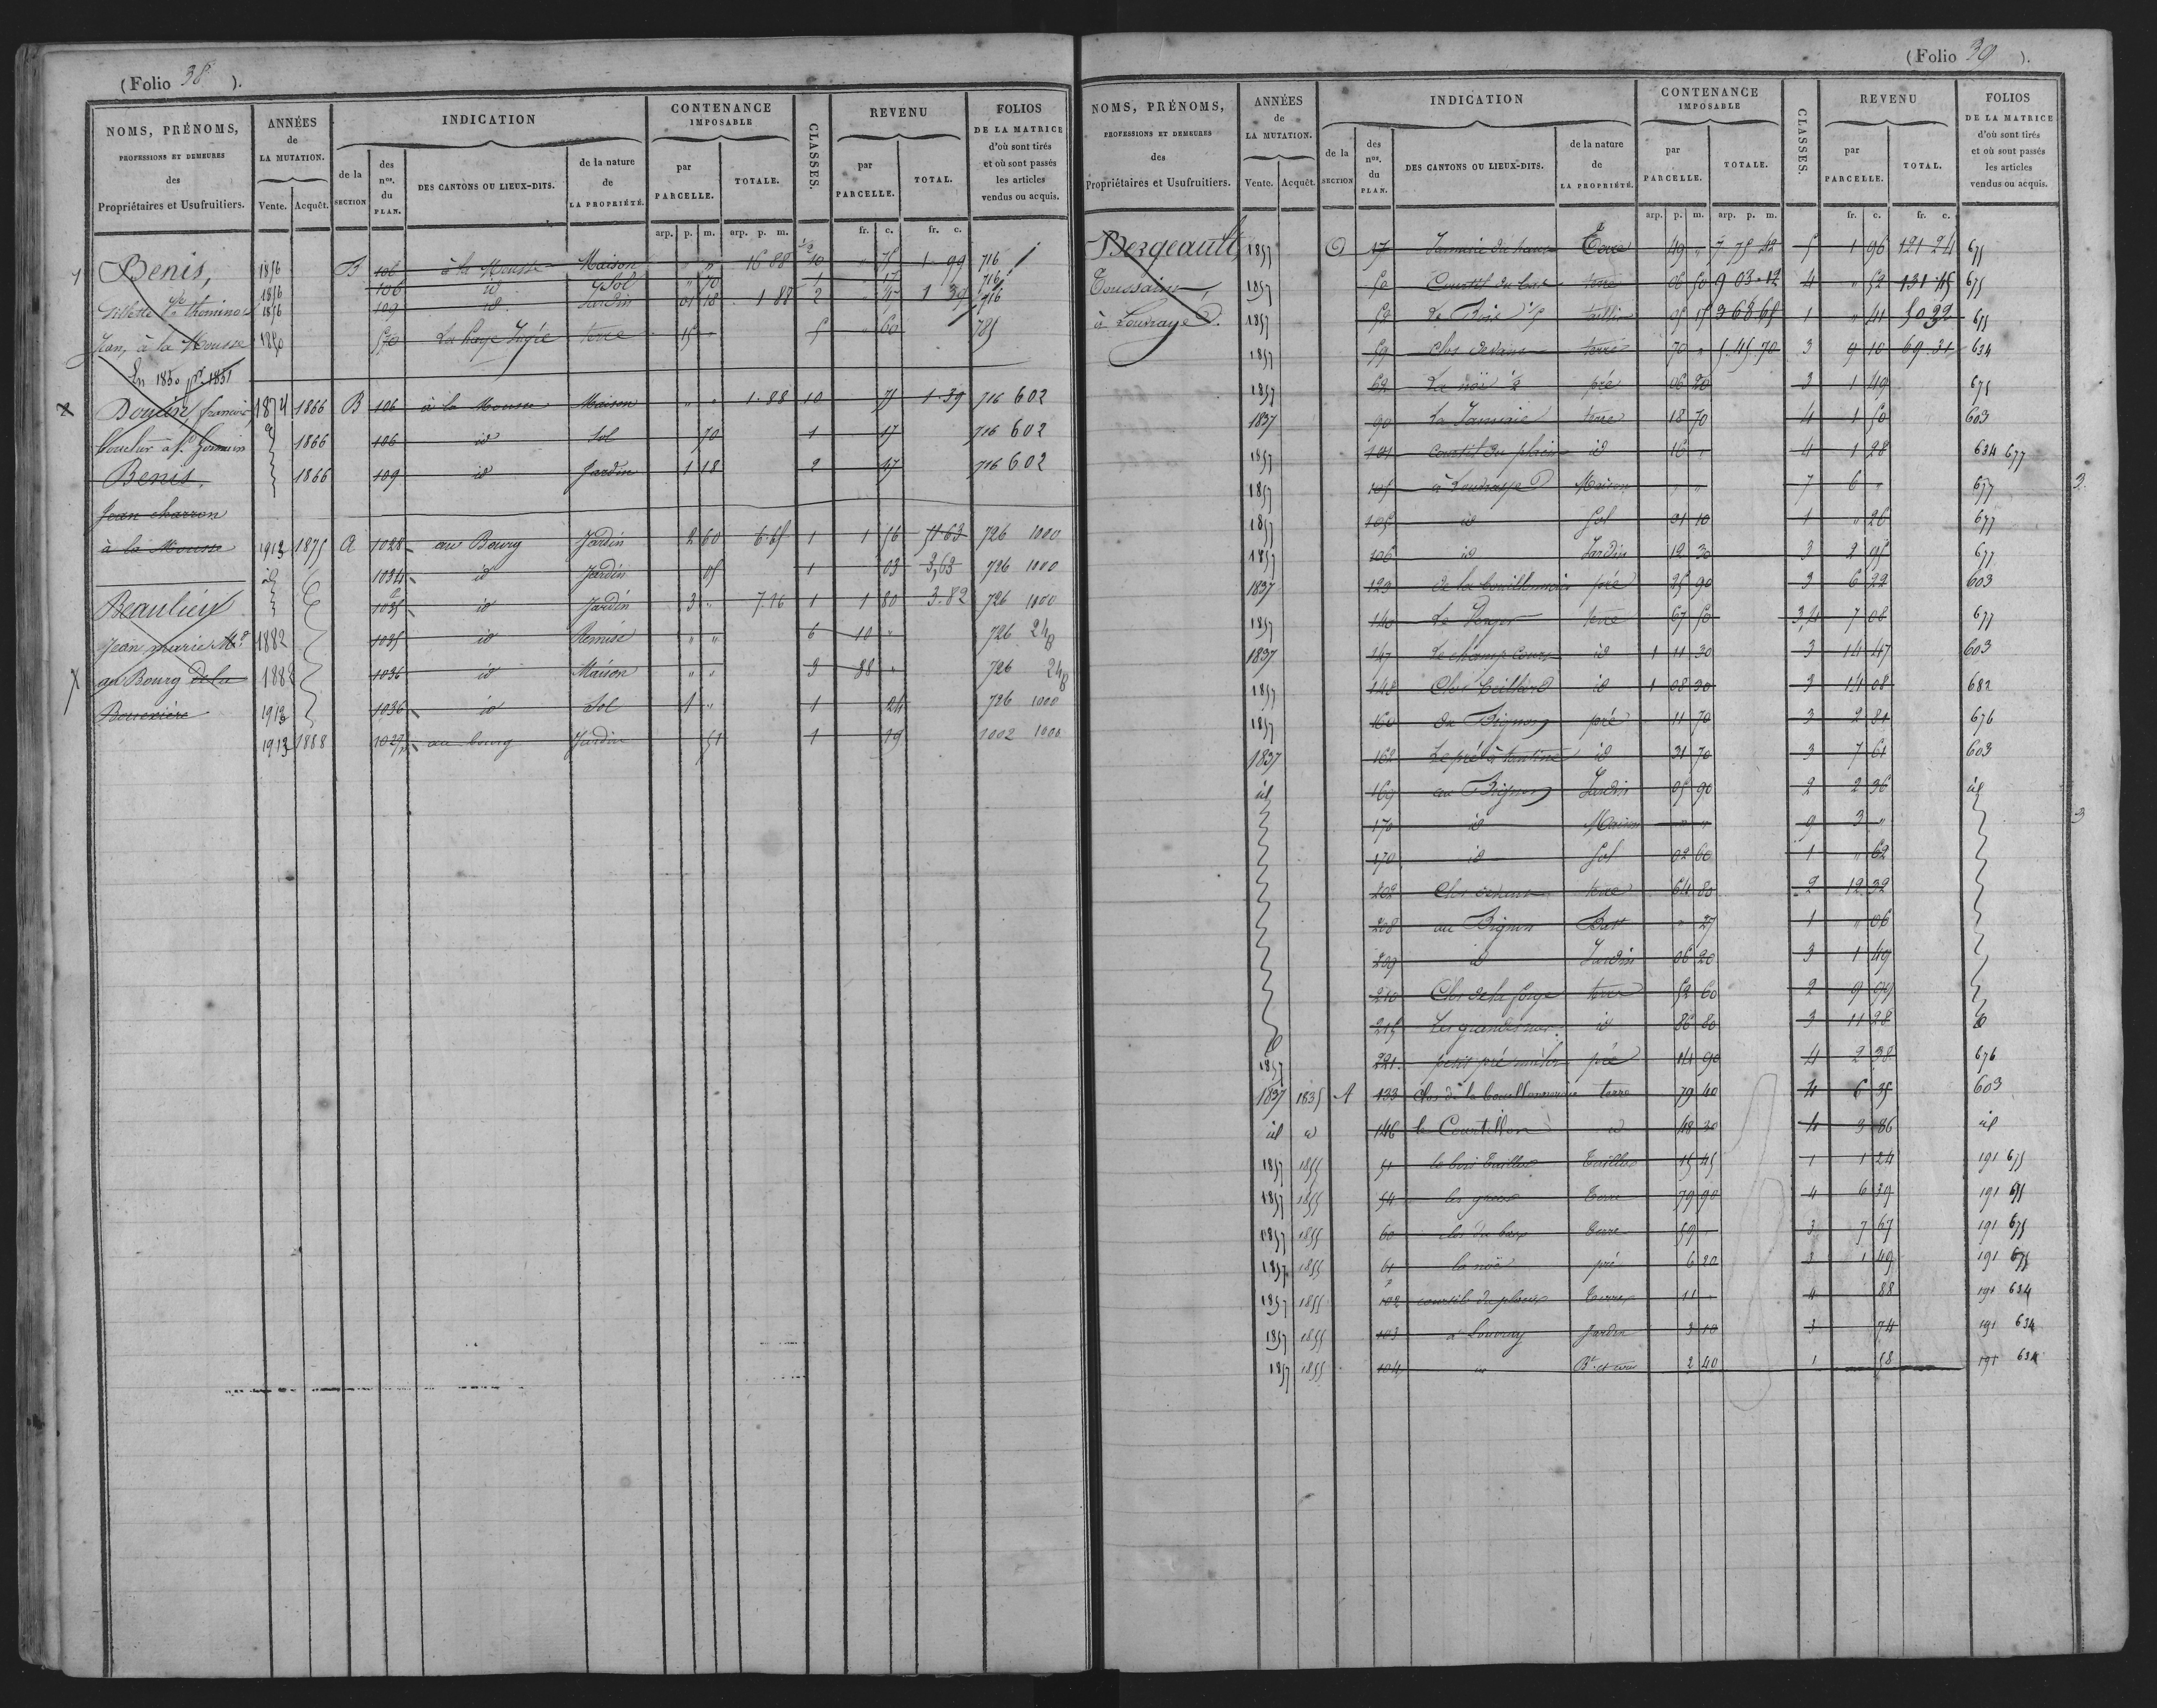 (Folio 38 ).
NOMS, PRÉNOMS, PROFESSIONS ET DEMEURES des Propriétaires et Usufruitiers.
ANNÉES de LA MUTATION. Vente. Acquêt.
INDICATION
de la SECTION
des nos. du PLAN.
DES CANTONS OU LIEUX-DITS.
de la nature de LA PROPRIÉTÉ.
CONTENANCE IMPOSABLE
par PARCELLE. TOTALE.
CLASSES.
REVENU
par PARCELLE. TOTAL.
FOLIOS DE LA MATRICE d'où sont tirés et où sont passés les articles vendus ou acquis.
arp. p. m. arp. p. m. fr. c. fr. c.
Benis, 1856 B 106 à la Mousse Maison " " 16 88 10 " 75 1 99 716
1856 106 id Sol " 70 1 " 17 716
1856 109 id Jardin 01 18 1 88 2 " 47 1 39 716
Jean, à la Mousse 1850 570 La haye terre 15 " 5 " 60 785
En 1850 pr. 1851
françois 1874 1866 B 106 à la Mousse Maison " " 1.88 10 75 1.39 716 602
1866 106 id Sol 70 1 17 716 602
Benis 1866 109 id Jardin 1 18 2 47 716 602
Jean charron
à la Mousse 1913 1875 A 1028 au Bourg Jardin 2 60 6.65 1 1 56 51.63 726 1000
1034 id Jardin 05 1 03 3,63 726 1000
Beaulieu 1035 id Jardin 3 " 7.16 1 1 80 3.82 726 1000
Jean marie Md 1882 1035 id Remise " " 6 10 " 726 248
au Bourg de la 1882 1036 id Maison " " 3 88 " 726 248
Bouexière 1913 1036 id Sol 1 " 1 24 726 1000
1913 1888 1027p au bourg Jardin 51 1 19 1002 1000
(Folio 39 ).
NOMS, PRÉNOMS, PROFESSIONS ET DEMEURES des Propriétaires et Usufruitiers.
ANNÉES de LA MUTATION. Vente. Acquêt.
INDICATION
de la SECTION
des nos. du PLAN.
DES CANTONS OU LIEUX-DITS.
de la nature de LA PROPRIÉTÉ.
CONTENANCE IMPOSABLE
par PARCELLE. TOTALE.
CLASSES.
REVENU
par PARCELLE. TOTAL.
FOLIOS DE LA MATRICE d'où sont tirés et où sont passés les articles vendus ou acquis.
arp. p. m. arp. p. m. fr. c. fr. c.
Bergeault, 1857 17 Terre 49 " 7 75 42 5 1 96 121 24 675
Toussaint, 1857 50 Courtil du bas terre 06 50 9 03 12 4 " 52 131 45 675
1857 52 Le Bois taillis 05 15 3 68 65 1 " 41 50 32 675
1857 59 clos devant terre 70 " 5.45.70 3 9 10 69.31 634
1857 62 La noë ½ pré 06 20 3 1 49 675
1837 90 La Jannaie terre 18 70 4 1 50 603
1857 101 Courtil du placis id 16 " 4 1 28 634 677
1857 105 Maison " " 7 6 " 677
1857 105 id Sol 01 10 1 " 26 677
1857 106 id Jardin 12 30 3 2 95 677
1837 123 pré 25 90 3 6 22 603
1857 140 Le Verger terre 67 50 3,4 7 08 677
1837 147 Le champ Court id 1 11 30 3 14 47 603
1857 148 id 1 08 30 3 14 08 682
1857 160 du Bignon pré 11 70 3 2 81 676
1837 162 Le pré à id 31 70 3 7 61 603
id 169 au Bignon Jardin 05 90 2 2 36 id
170 id Maison " " 9 3 "
170 id Sol 02 60 1 " 62
202 Clos terre 64 80 2 12 32
208 au Bignon Bat " 27 1 " 06
209 id Jardin 06 20 3 1 49
210 Clos de la forge terre 52 60 2 9 99
215 Les grandes id 86 80 3 11 28
1857 221 petit pré pré 14 90 4 2 38 676
1837 1835 A 133 terre 79 40 4 6 35 603
id id 146 le Courtillon id 48 30 4 3 86 id
1857 1855 51 le bois taillis Taillis 15 45 1 1 24 191 675
1857 1855 54 Terre 79 90 4 6 39 191 675
1857 1855 60 clos du bas terre 59 " 3 7 67 191 675
1857 1855 61 la noë pré 6 20 3 1 49 191 675
1857 1855 102 courtil du placis Terre 11 " 4 88 191 634
1857 1855 103 à Louvray Jardin 3 10 3 74 191 634
1857 1855 104 id Bt. et cour 2 40 1 58 191 634